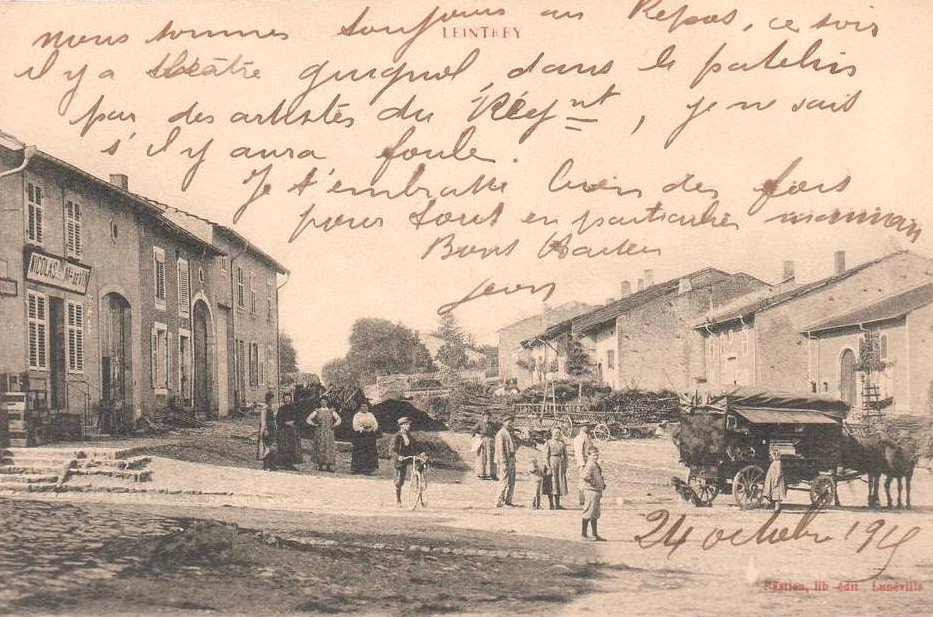 LEINTREY
nous sommes toujours au Repos, ce soir
il y a théâtre guignol, dans le patelin
par des artistes du Régnt, je ne sais
s'il y aura foule.
Je t'embrasse bien des fois
pour tous en particulier maman
Bons Baisers
Jean
NICOLAS Md DE VIN
24 octobre
Bastien, lib-édit Lunéville